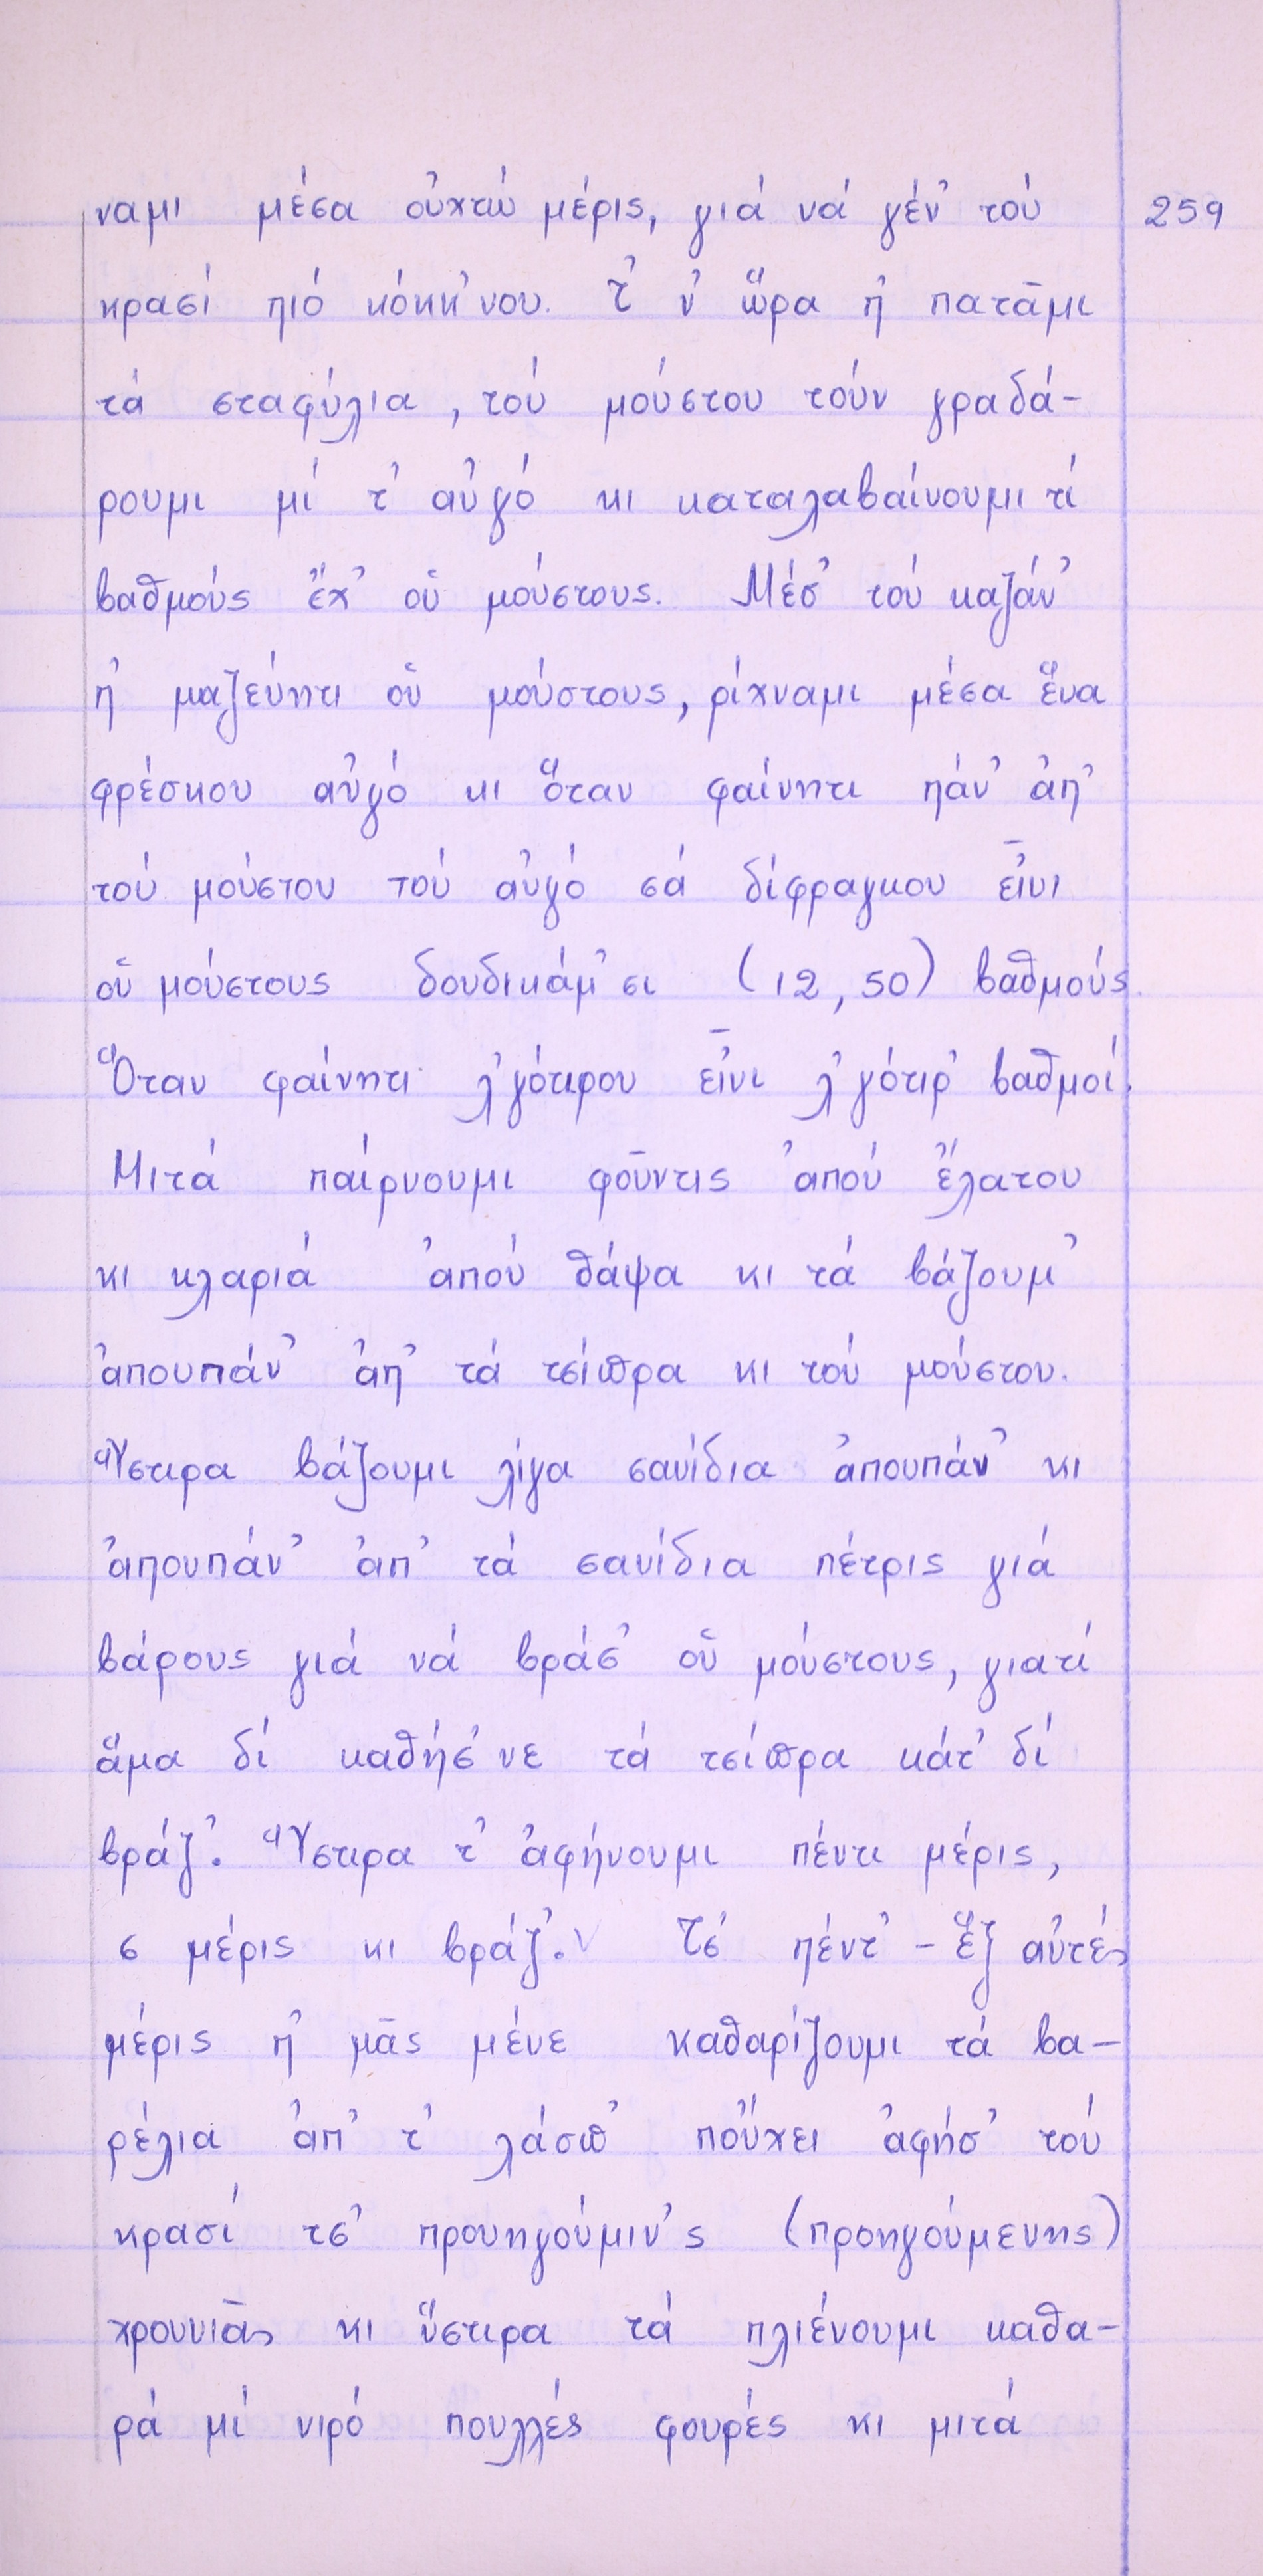 ναμι μέσα οὐχτώ μέρις, γιά νά γέν' τού 259
κρασί πιό κόκκ'νου. Τ' ν' ὥρα π' πατᾶμι
τά σταφύλια, τού μούστου τούν γραδά-
ρουμι μί τ' αὐγό κι καταλαβαίνουμι τί
βαθμούς ἔχ' οὑ μούστους. Μέσ' τού καζάν'
π' μαζεύιτι οὑ μούστους, ρίχναμι μέσα ἕνα
φρέσκου αὐγό κι ὅταν φαίνητι πάν' ἀπ'
τού μούστου τού αὐγό σά δίφραγκου εἶνι
οὑ μούστους δουδικάμ'σι (12,50) βαθμούς.
Ὅταν φαίνητι λ'γότιρου εἶνι λ'γότιρ' βαθμοί.
Μιτά παίρνουμι φοῦντις ἀπού ἔλατου
κι κλαριά ἀπού θάψα κι τά βάζουμ'
ἀπουπάν' ἀπ' τά τσίπρα κι τού μούστου.
Ὕστιρα βάζουμι λίγα σανίδια ἀπουπάν' κι
ἀπουπάν' ἀπ' τά σανίδια πέτρις γιά
βάρους γιά νά βράσ' οὑ μούστους, γιατί
ἅμα δέ καθήσ'νε τά τσίπρα κάτ' δί
βράζ'. Ὕστιρα τ' ἀφήνουμι πέντι μέρις,
6 μέρις κι βράζ'. Τσ' πέντ' - ἕξ αὐτές
μέρις π' μᾶς μένε καθαρίζουμι τά βα-
ρέλια ἀπ' τ' λάσπ' πὄχει ἀφήσ' τού
κρασί τσ' προυηγούμιν'ς (προηγούμενης)
χρουνιᾶς κι ὕστιρα τά πλιένουμι καθα-
ρά μί νιρό πουλλές φουρές κι μιτά